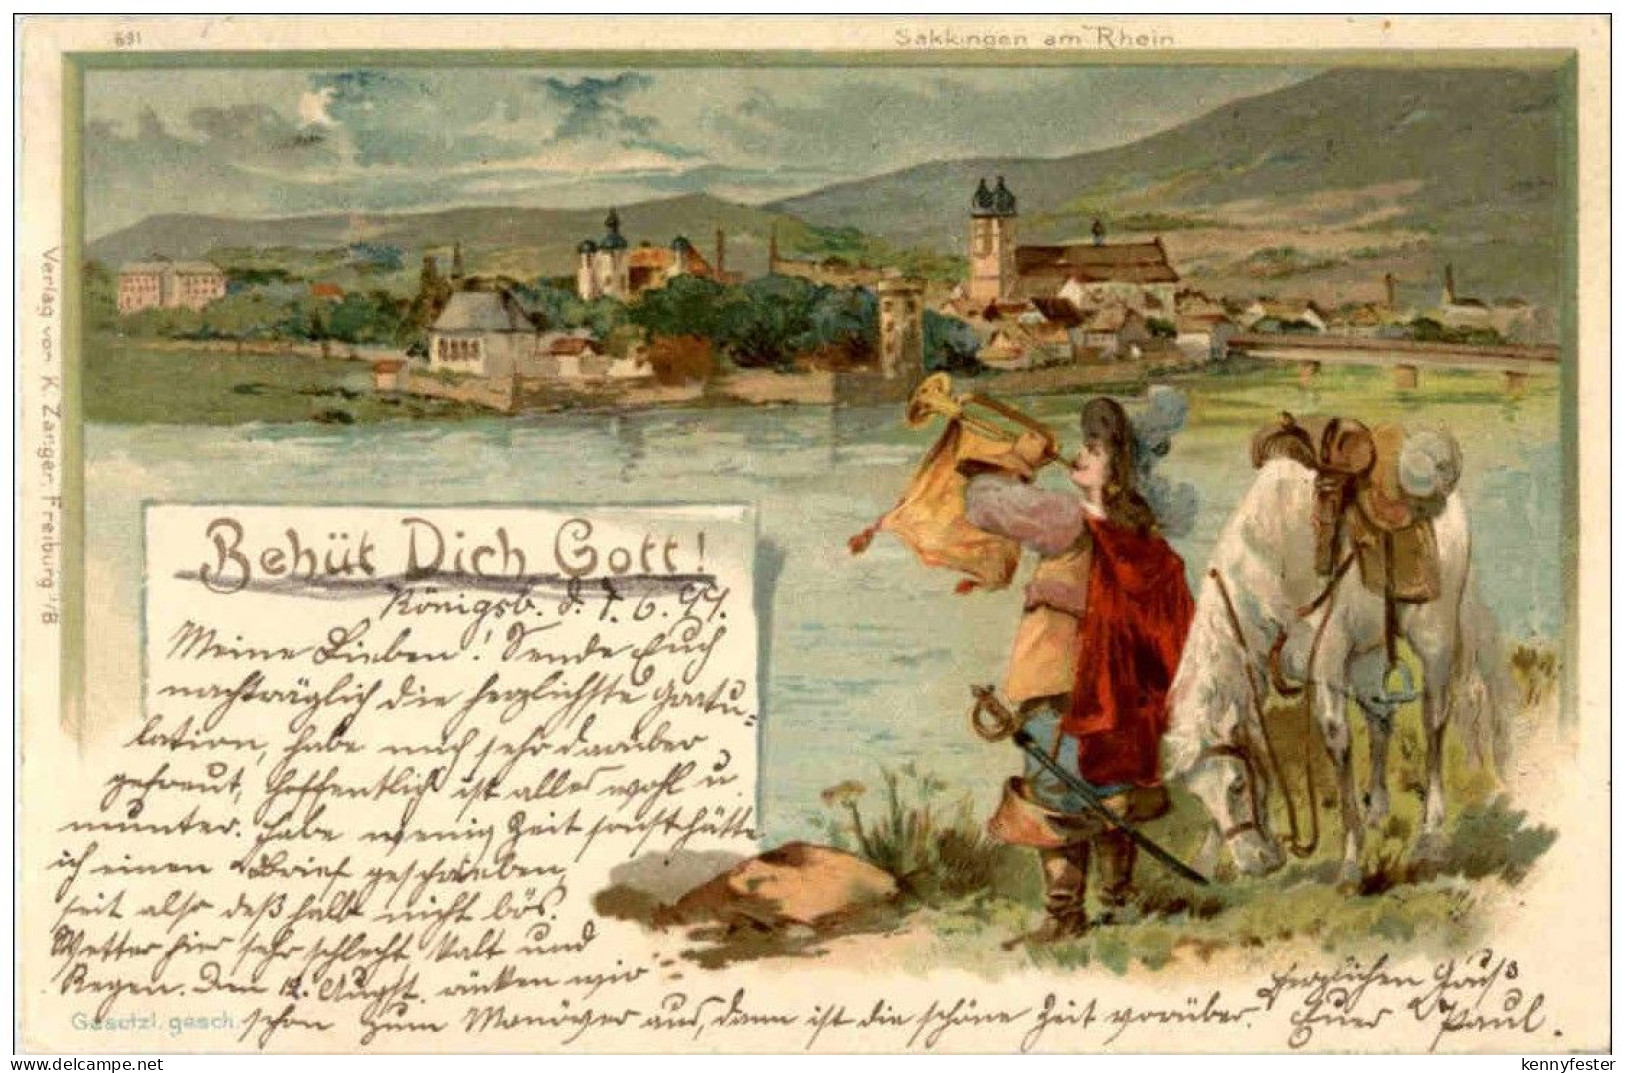 691
Säkkingen am Rhein
Verlag von K. Zanger, Freiburg i/B
Behüt Dich Gott!
Königsb. d. 7. 6.
Meine Lieben! Sende Euch
nachträglich die herzlichste Gratu-
lation, habe mich sehr darüber
gefreut, hoffentlich ist alles wohl u.
munter. habe wenig Zeit sonst hätte
ich einen Brief geschrieben,
seit also deßhalb nicht bös.
Wetter hier sehr schlecht kalt und
Regen. Den 12. August. rücken wir
schon zum Manöver aus, dann ist die schöne Zeit vorüber.
Herzlichen Gruß
Euer Paul.
Gesetzl. gesch.
delcampe.net
kennyfester